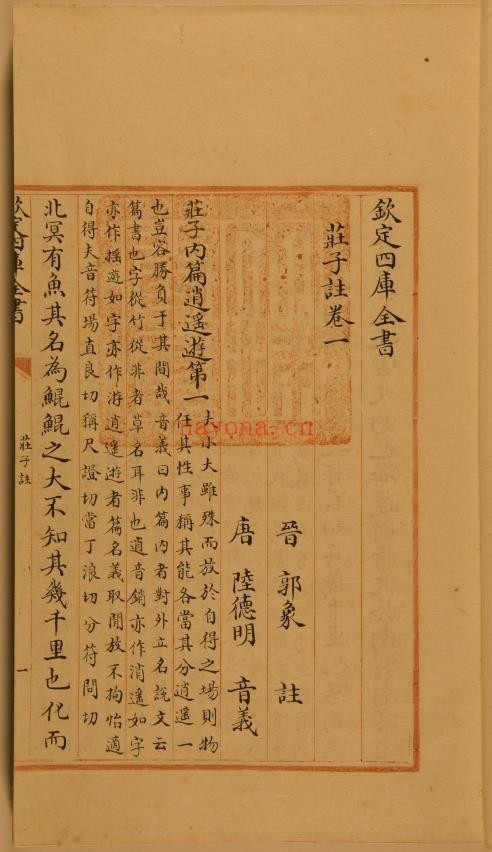 欽定四庫全書
莊子註卷一
晉 郭象 註
唐 陸德明 音義
莊子内篇逍遥遊第一
夫小大雖殊而放於自得之場則物
任其性事稱其能各當其分逍遥一
也豈容勝負于其間哉音義曰内篇内者對外立名說文云
篇書也字從竹從艸者草名耳非也逍音銷亦作消遥如字
亦作摇遊如字亦作游逍遥遊者篇名義取閒放不拘怡適
自得夫音符場直良切稱尺證切當丁浪切分符問切
北冥有魚其名為鯤鯤之大不知其幾千里也化而
欽定四庫全書
莊子註
一
nayona.cn